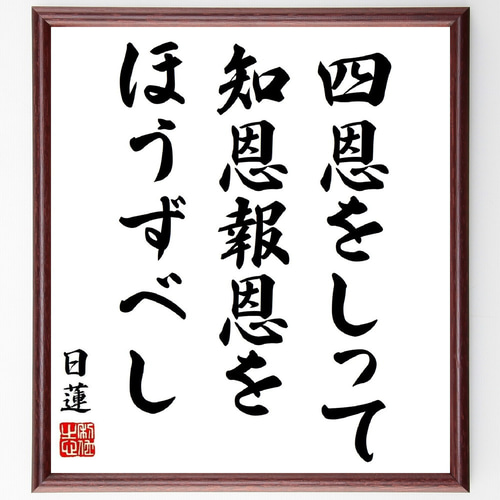 四恩をしって
知恩報恩を
ほうずべし
日蓮